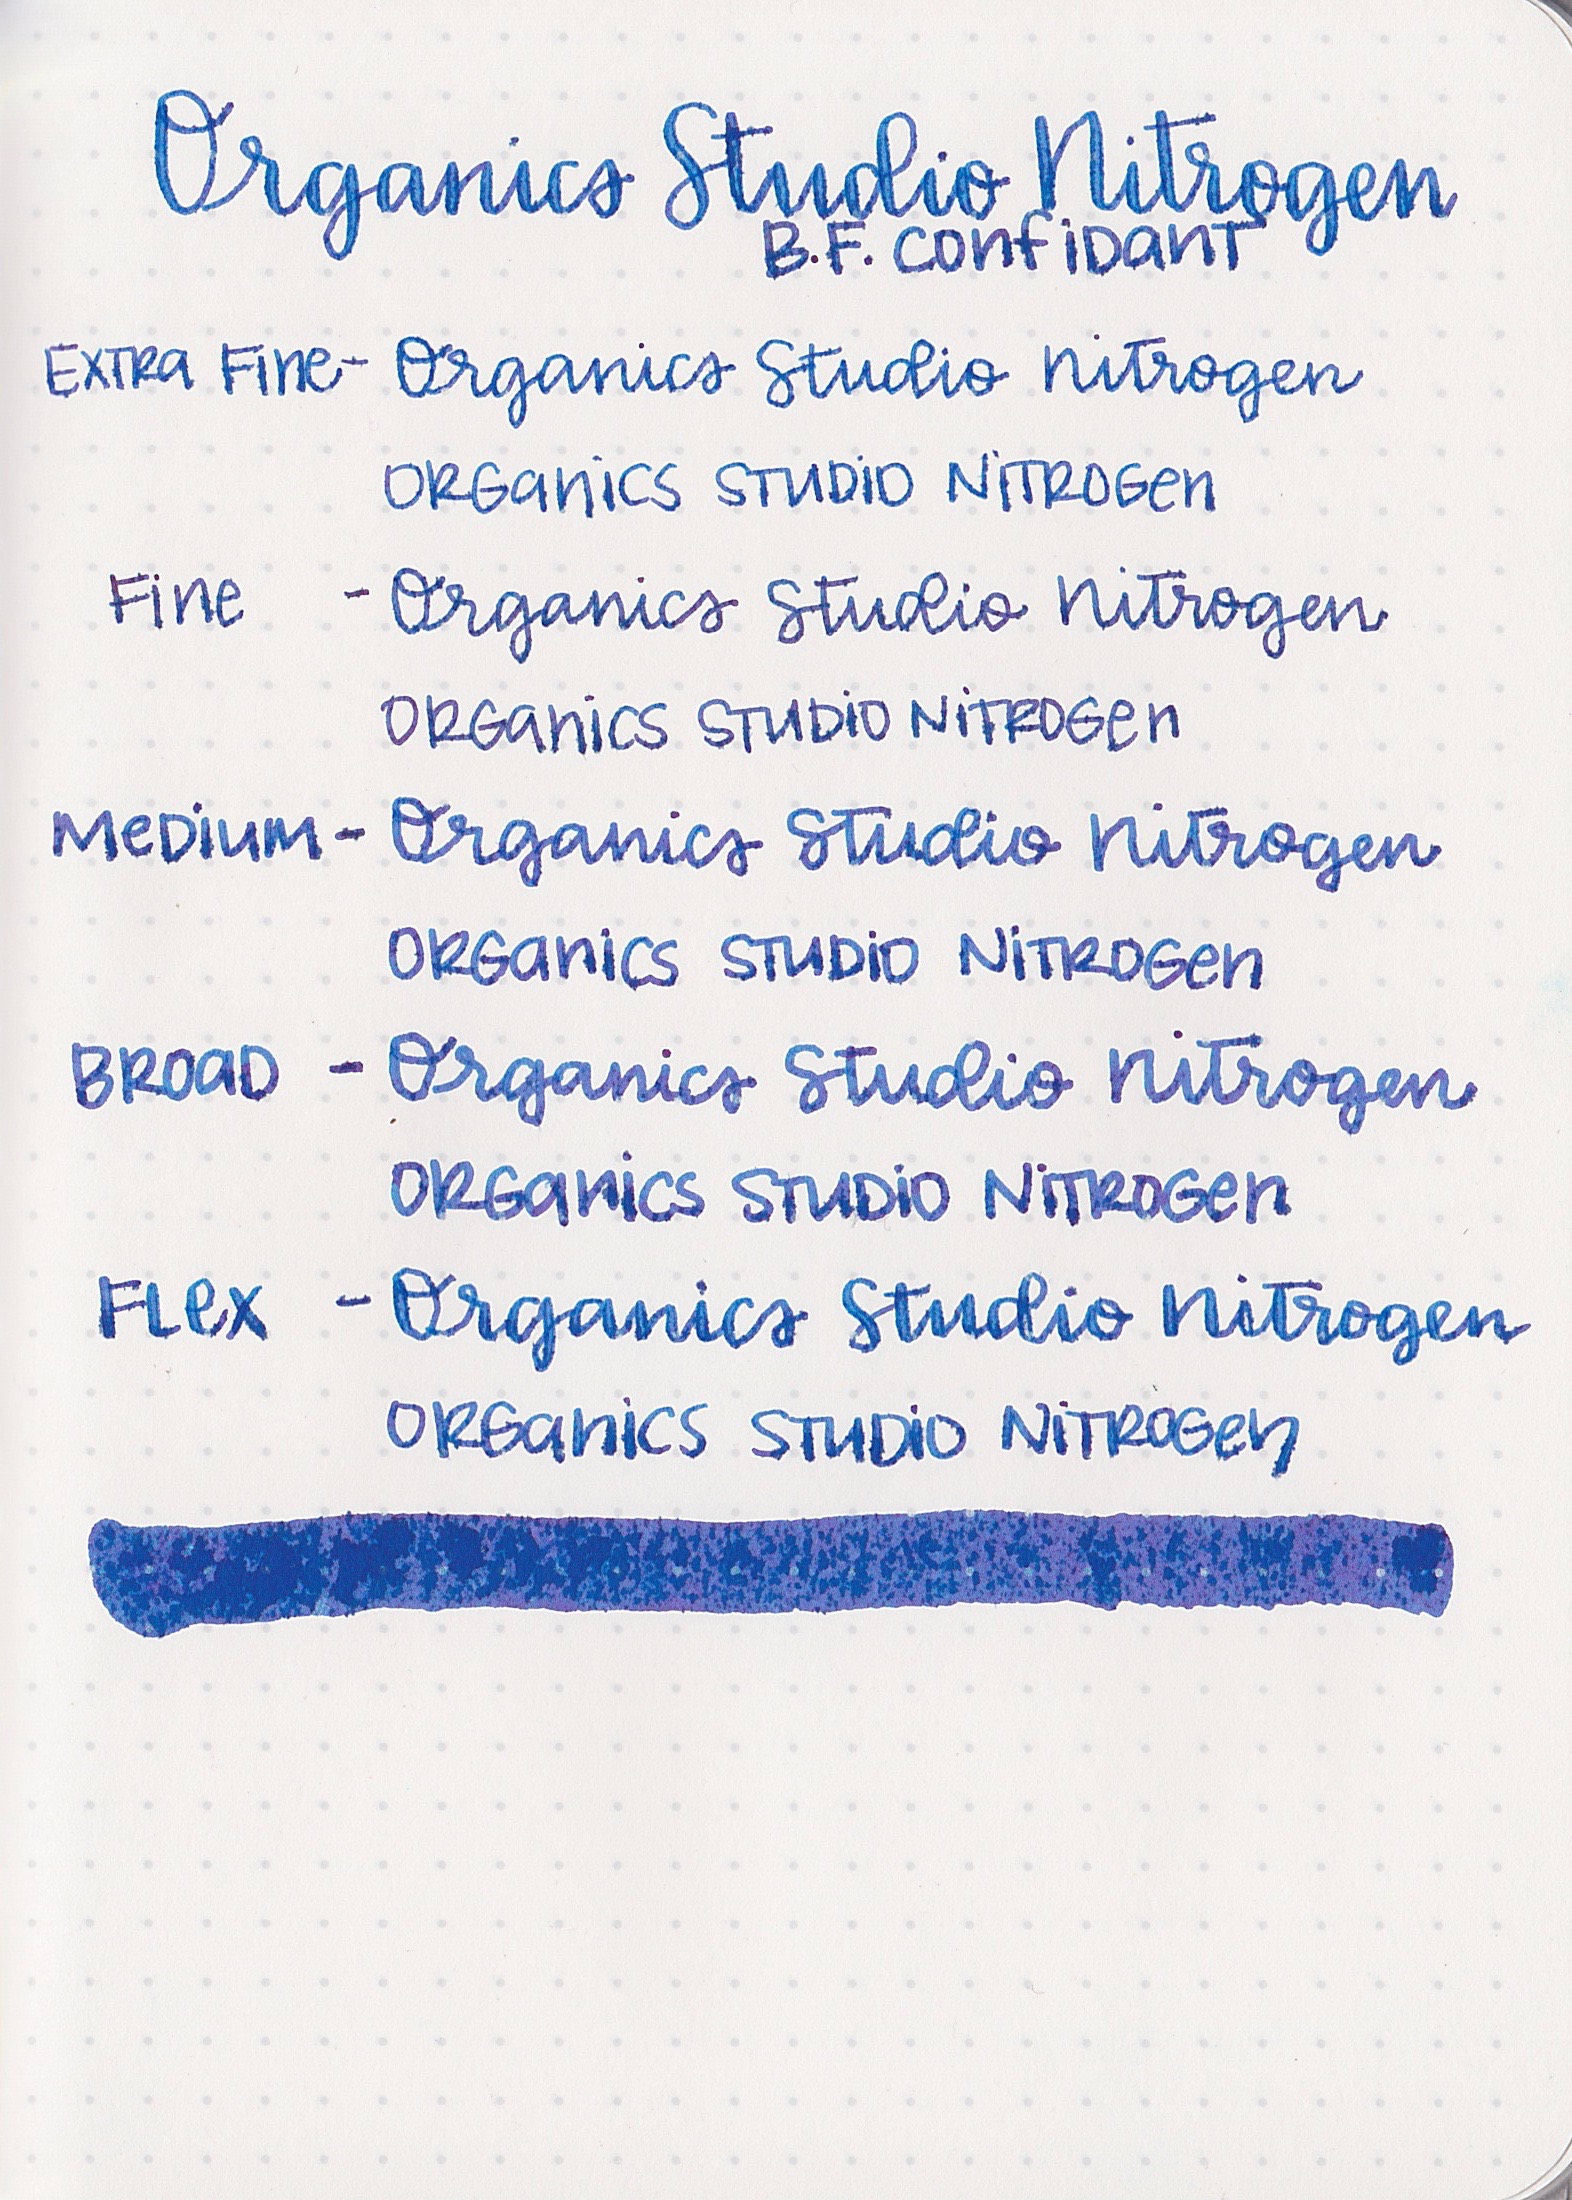 Organics Studio Nitrogen
B.F. Confidant
Extra Fine - Organics Studio Nitrogen
Organics Studio Nitrogen
Fine - Organics Studio Nitrogen
Organics Studio Nitrogen
Medium - Organics Studio Nitrogen
Organics Studio Nitrogen
Broad - Organics Studio Nitrogen
Organics Studio Nitrogen
Flex - Organics Studio Nitrogen
Organics Studio Nitrogen